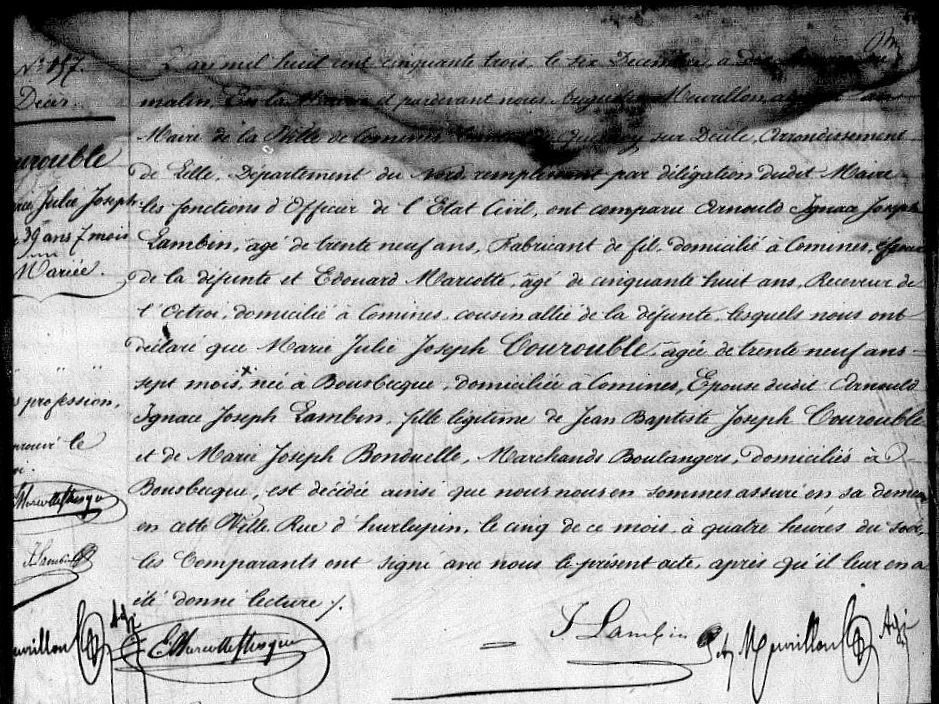 N° 157.
Décès
Courouble
Marie Julie Joseph
39 ans 7 mois
Mariée.
profession,
approuvé le
L'an mil huit cent cinquante trois, le six Décembre, à dix heures du
matin, En la Mairie et pardevant nous Augustin Meurillon, adjoint au
Maire de la Ville de Comines, Canton de Quesnoy sur Deûle, Arrondissement
de Lille, Département du Nord, remplissant par délégation dudit Maire
les fonctions d'Officier de l'Etat Civil, ont comparu Arnould Ignace Joseph
Lambin, âgé de trente neuf ans, Fabricant de fil, domicilié à Comines, Epoux
de la défunte et Edouard Marcotte, âgé de cinquante huit ans, Receveur de
l'Octroi, domicilié à Comines, cousin allié de la défunte, lesquels nous ont
déclaré que Marie Julie Joseph Courouble, âgée de trente neuf ans
sept mois, née à Bousbecque, domiciliée à Comines, Epouse dudit Arnould
Ignace Joseph Lambin, fille légitime de Jean Baptiste Joseph Courouble
et de Marie Joseph Bonduelle, Marchands Boulangers, domiciliés à
Bousbecque, est décédée ainsi que nous nous en sommes assuré en sa demeure
en cette Ville, Rue d'hurlupin, le cinq de ce mois, à quatre heures du soir,
les Comparants ont signé avec nous le présent acte, après qu'il leur en a
été donné lecture /.
J Lambin
Meurillon Adj